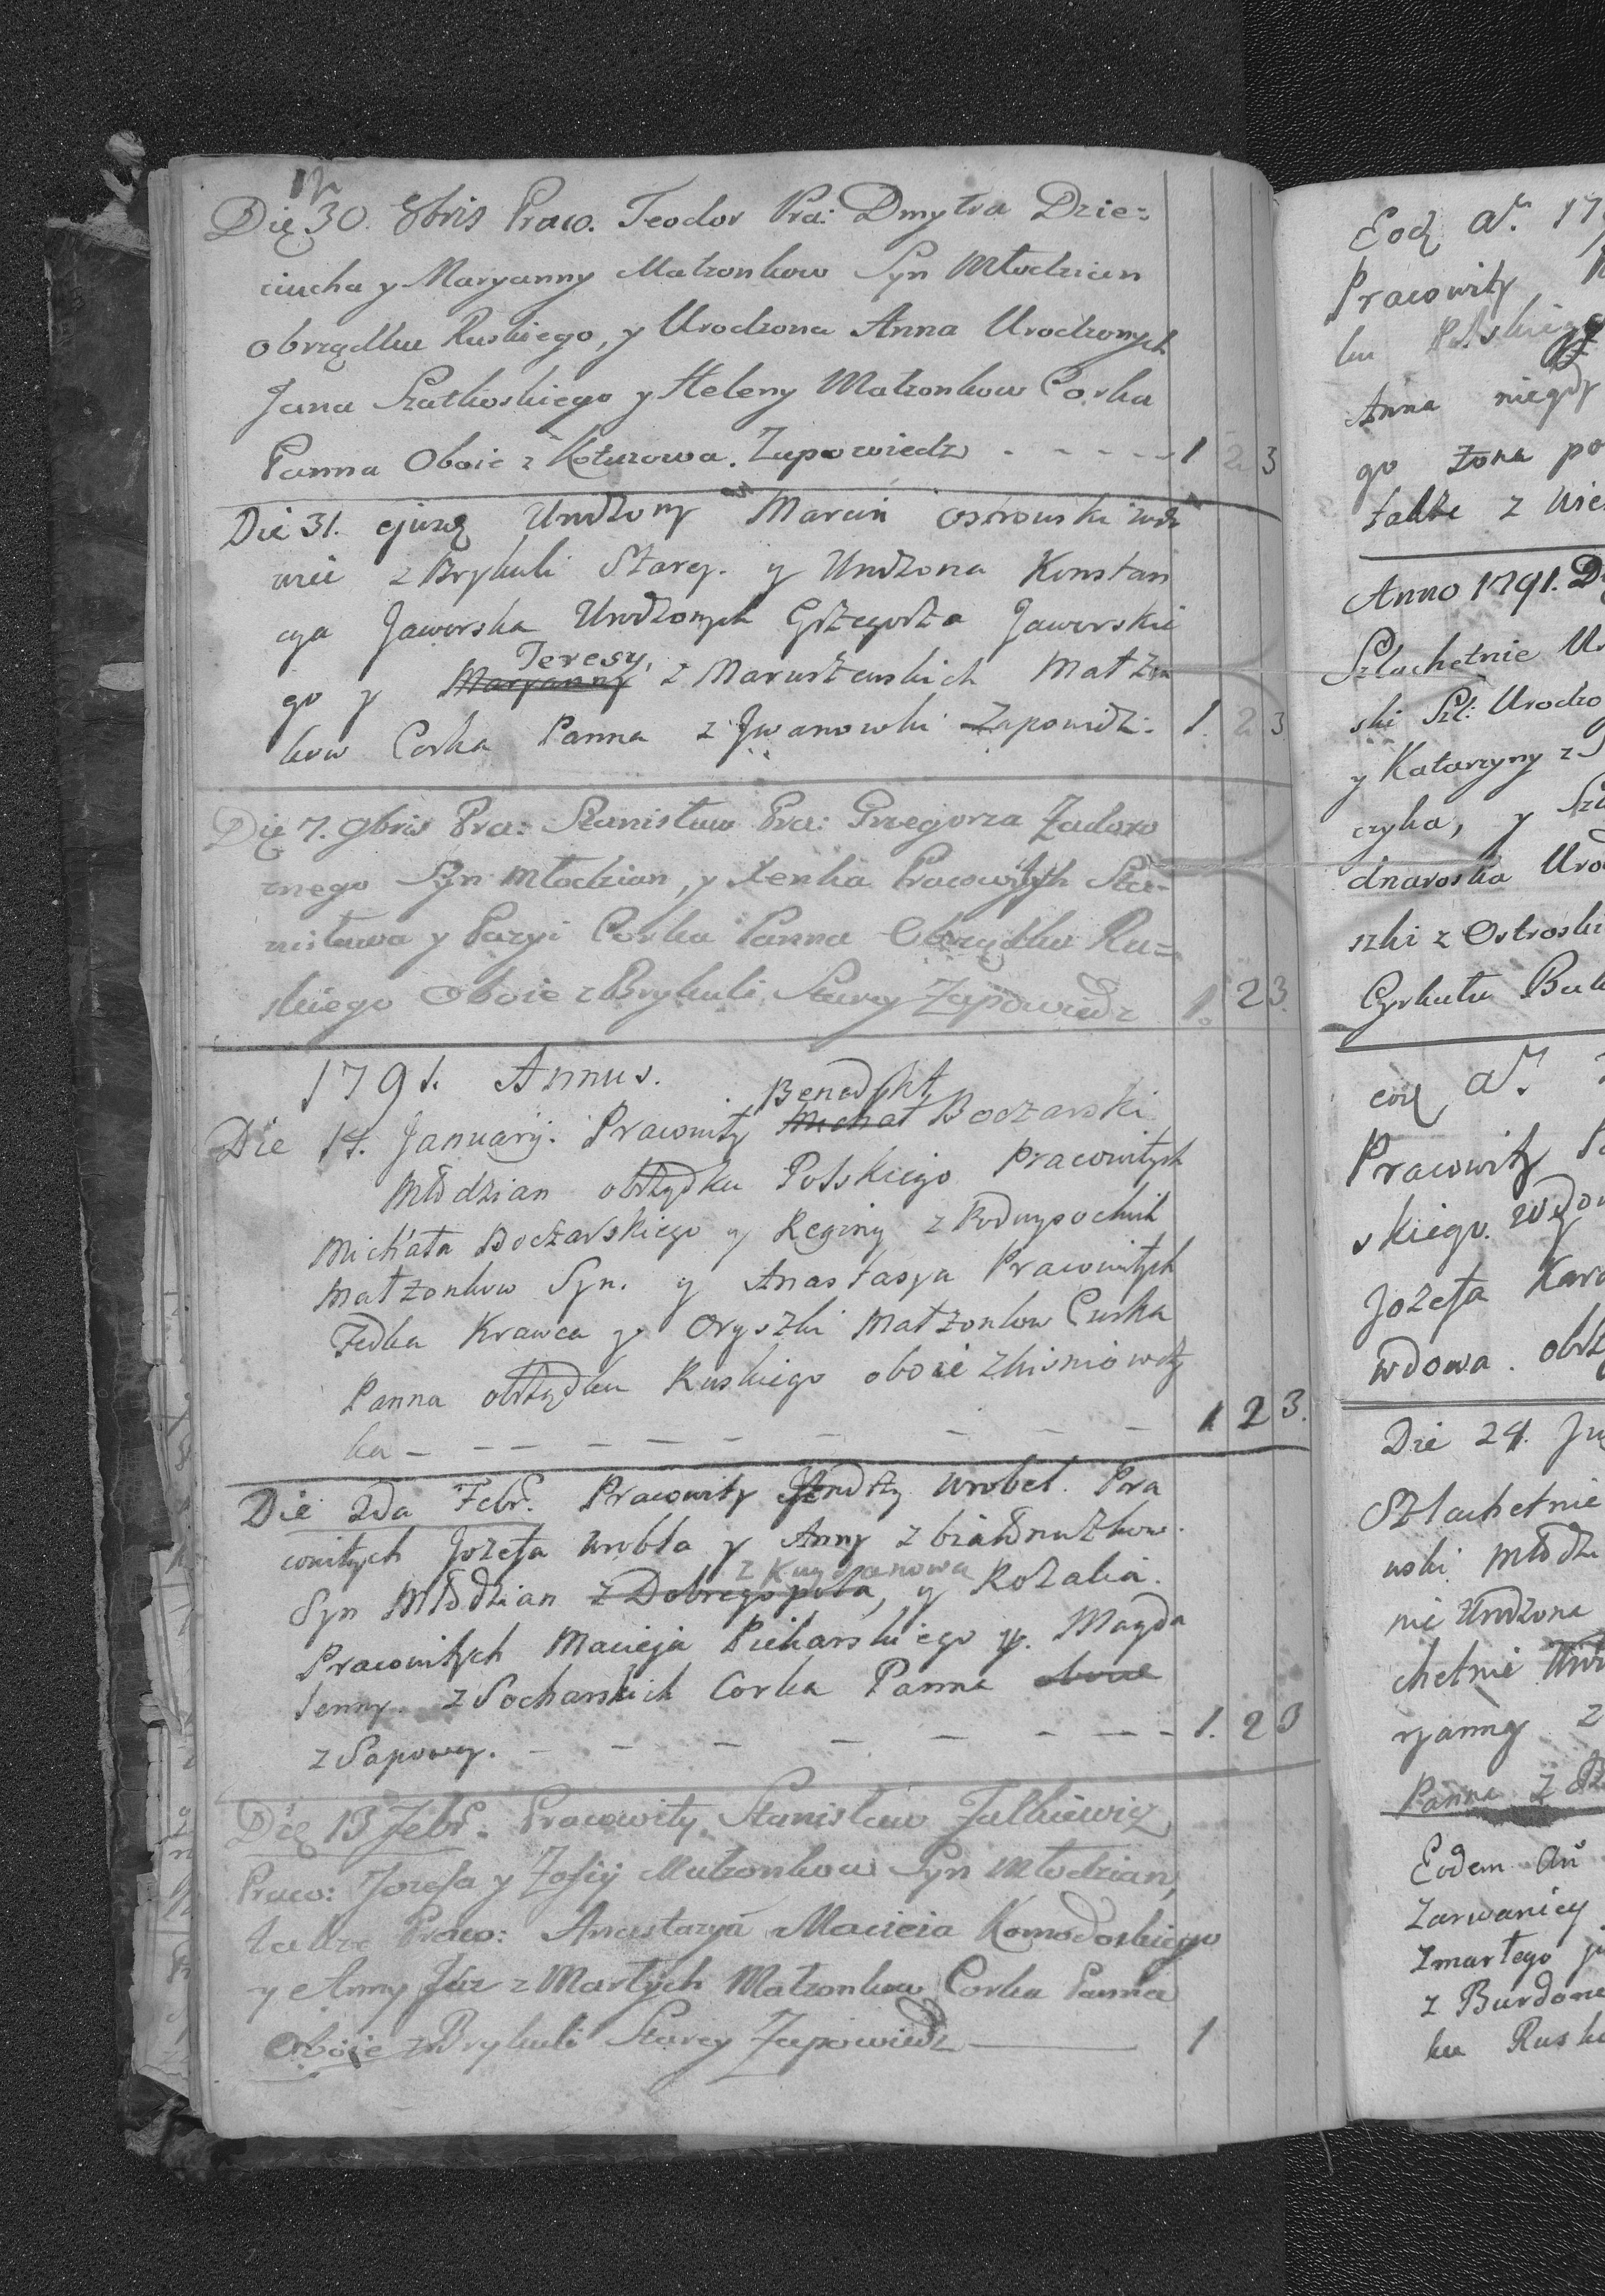 12
Die 30. 8bris Praco. Teodor Pra: Dmytra Dzie=
ciucha y Maryanny Malzonkow Syn Młodzian
obrządku Ruskiego, y Urodzona Anna Urodzonych
Jana Szatkoskiego y Heleny Malzonkow Corka
Panna Oboie z Koturowa. Zapowiedz - - - - - 1 2 3
Die 31. ejusq Urodzony Marcin Ostrowski
z Brykuli Starey. y Urodzona Konstan
cya Jaworska Urodzonych Grzegorza Jaworskie
go y Maryanny Teresy, z Maruszewskich Małżon
kow Corka Panna z Jwanowki Zapowidz: 1. 2 3
Die 7. 9bris Pra: Stanisław Pra: Grzegorza Zadoro
znego Syn Młodzian, y Xenka Pracowitych Sta-
nisława y Paryi Corka Panna Obrządku Ru=
skiego Oboie z Brykuli Starey Zapowiedz 1. 2 3.
1791. Annus.
Benedykt
Die 14. January. Pracowity Michał Boczarski
Młodzian obrządku Polskiego Pracowitych
Michała Boczarskiego y Reginy z Podwysockich
Małzonkow Syn. y Anastasya Pracowitych
Fedka Krawca y Oryszki Małzonkow Curka
Panna obrządku Ruskiego oboie z
ka - - - - - - - - - 1 2 3.
Die 2da Febr. Pracowity Jendrzy Wrobel. Pra
cowitych Jozefa Wrobla y Anny z
z Kuydanowa
Syn Młodzian z Dobregopola, y Rozalia.
Pracowitych Macieja Piekarskiego y. Magda
lenny. z Sochanskich Corka Panna oboie
z Sapowy. - - - - - - - 1. 2 3
Die 13 Febr. Pracowity Stanisław Falkiewicz
Praco: Jozefa y Zofiy Malzonkow Syn Młodzian,
także Praco: Anastazya Macieia Komodoskiego
y Anny Juz z Marłych Malzonkow Corka Panna
Oboie z Brykuli Starey Zapowiedz 1
Eod A. 17
Pracowity
ku Polskiego
Anna niegdy
go zona po
także z
Anno 1791. D
Szlachetnie Ur
ski Szl: Urodzo
y Katarzyny z
czyka, y Szl
dnaroska Uro
szki z Ostroski
Cyrkułu
eod A.
Pracowity
skiego.
Jozefa
wdowa. obrz
Die 24. Ju
Szlachetnie
wski Młodzi
nie Urodzona
chetnie
ryanny z
Panna z
Eodem An
Zarwanicy
Zmarłego
z Burdon
ku Rusk